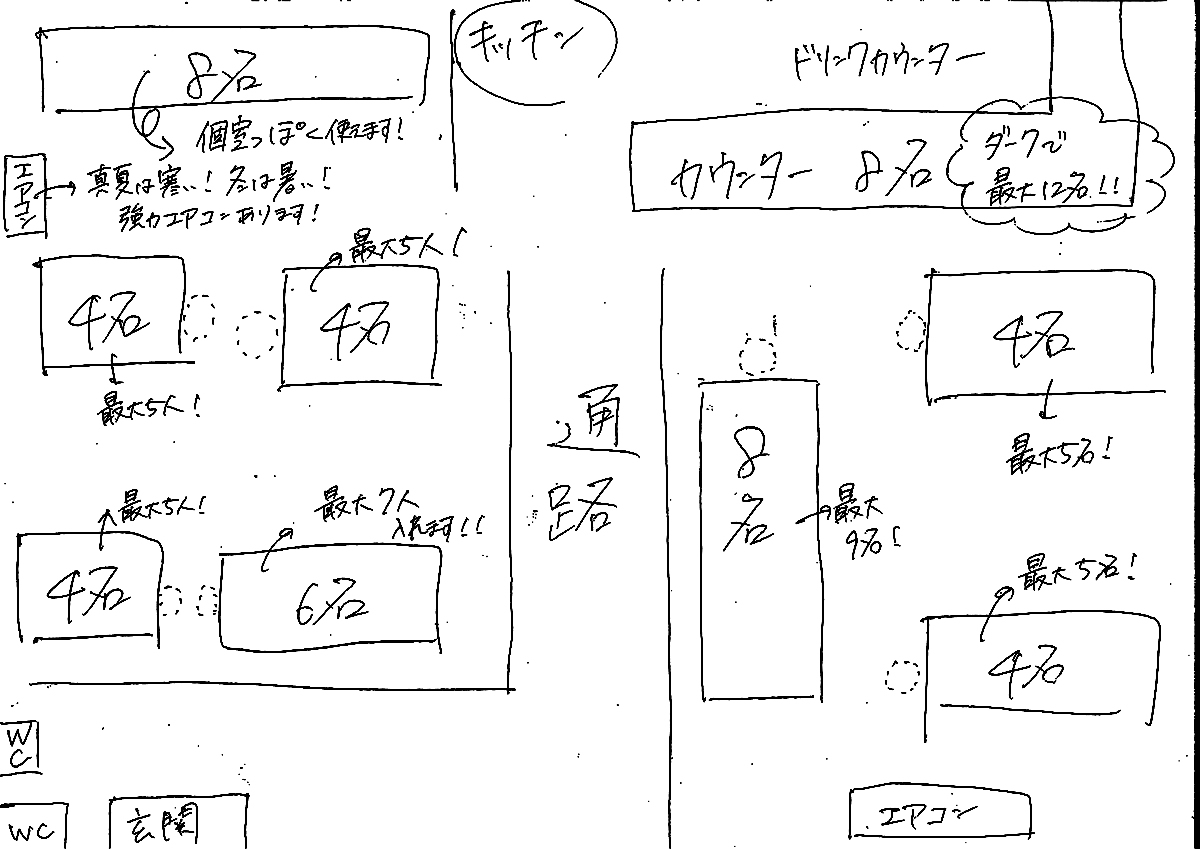 8名
個室っぽく使えます!
エアコン
真夏は寒い!冬は暑い!
強力エアコンあります!
キッチン
ドリンクカウンター
カウンター 8名
ダークで
最大12名!!
4名
最大5人!
最大5人!
4名
通路
4名
最大5人!
最大7人
入れます!!
6名
8名
最大
9名!
4名
最大5名!
最大5名!
4名
WC
WC
玄関
エアコン